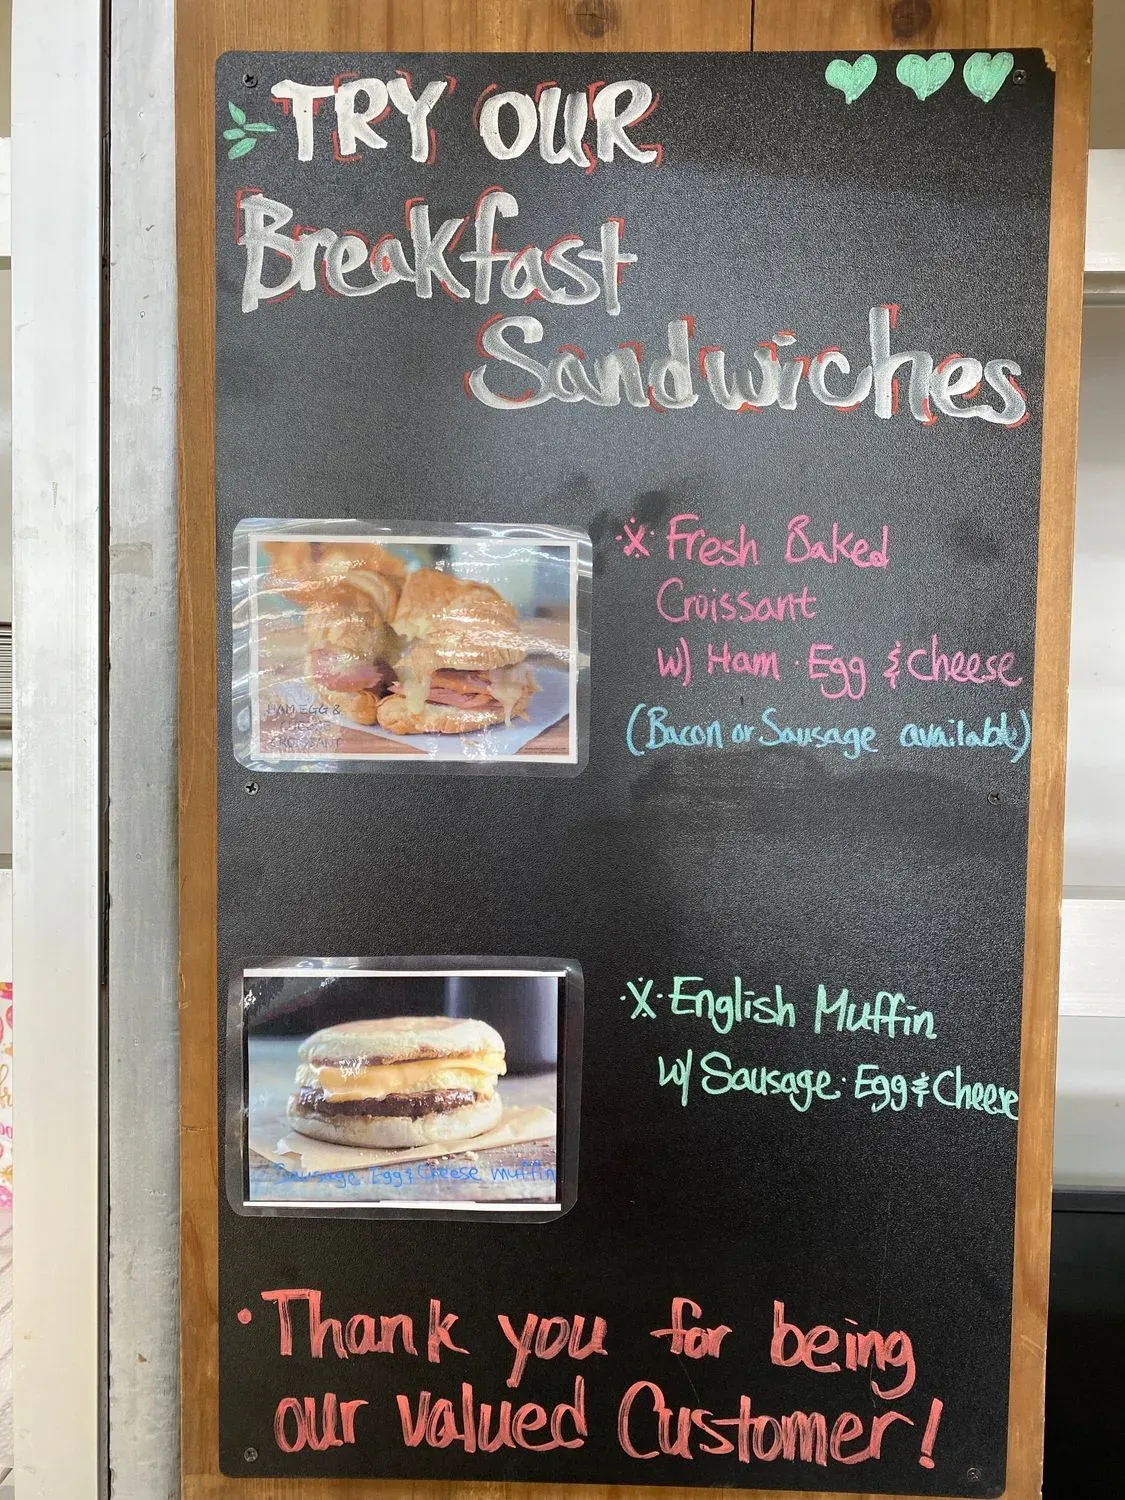 TRY OUR
Breakfast
Sandwiches
Fresh Baked
Croissant
w/ Ham · Egg & cheese
(Bacon or Sausage available)
HAM, EGG &
CROISSANT
English Muffin
w/ Sausage · Egg & Cheese
Sausage, Egg & Cheese muffin
• Thank you for being
our valued Customer!